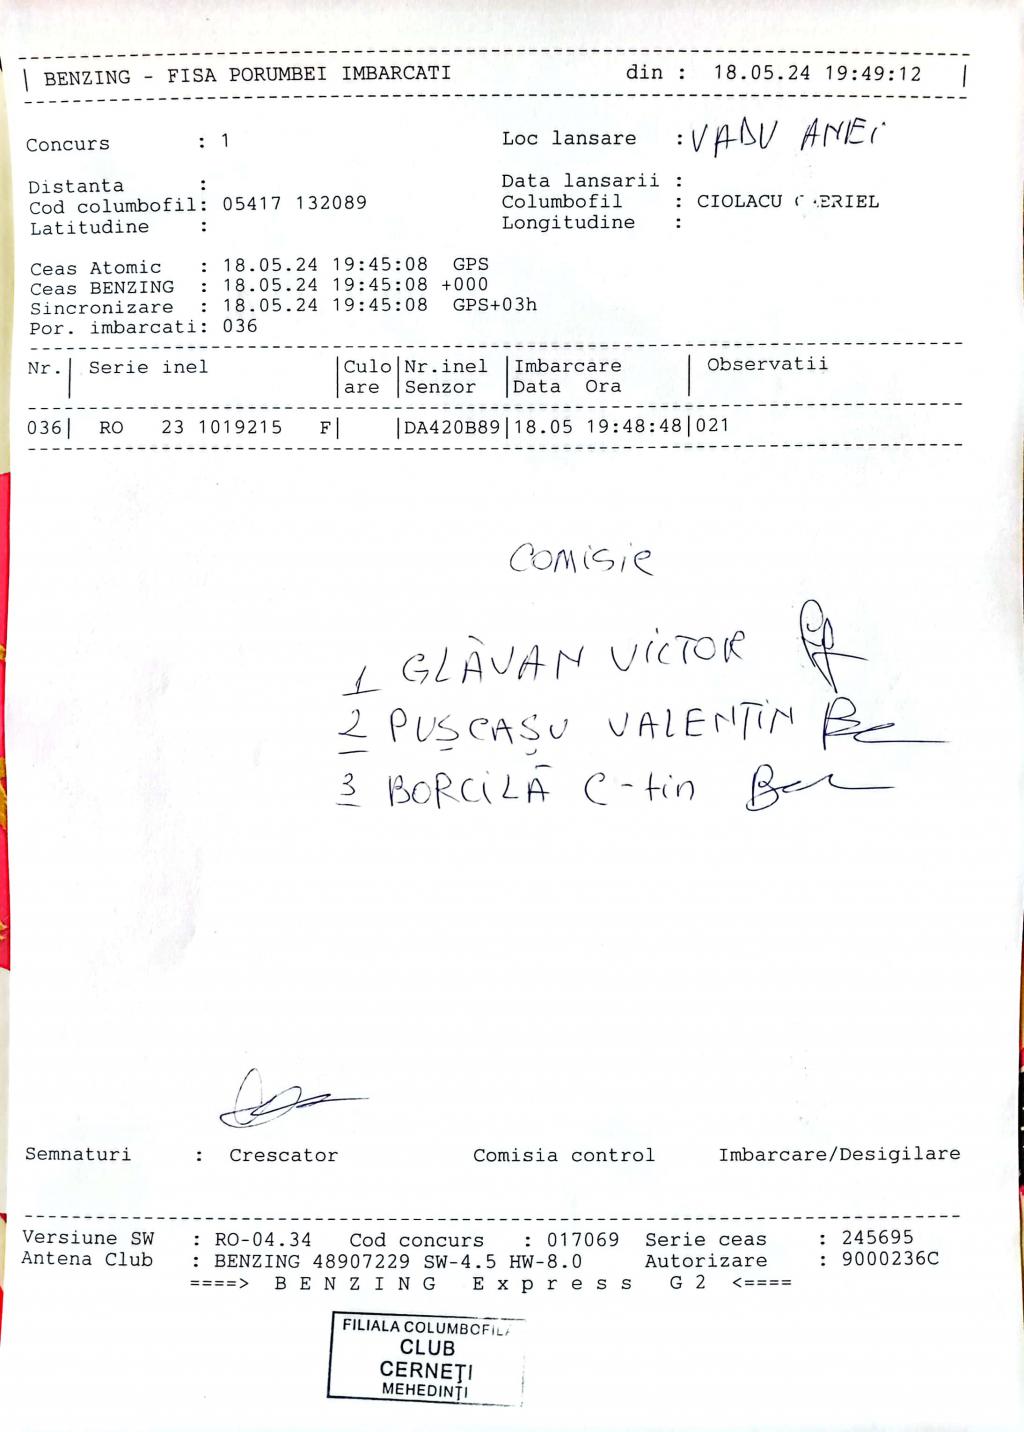 | BENZING - FISA PORUMBEI IMBARCATI din : 18.05.24 19:49:12 |
Concurs : 1 Loc lansare : VADU ANEI
Distanta : Data lansarii :
Cod columbofil: 05417 132089 Columbofil : CIOLACU
Latitudine : Longitudine :
Ceas Atomic : 18.05.24 19:45:08 GPS
Ceas BENZING : 18.05.24 19:45:08 +000
Sincronizare : 18.05.24 19:45:08 GPS+03h
Por. imbarcati: 036
Nr.| Serie inel |Culo|Nr.inel |Imbarcare | Observatii
| |are |Senzor |Data Ora |
036| RO 23 1019215 F| |DA420B89|18.05 19:48:48|021
COMISIE
1 GLĂVAN VICTOR
2 PUȘCAȘU VALENTIN
3 BORCILĂ C-tin
Semnaturi : Crescator Comisia control Imbarcare/Desigilare
Versiune SW : RO-04.34 Cod concurs : 017069 Serie ceas : 245695
Antena Club : BENZING 48907229 SW-4.5 HW-8.0 Autorizare : 9000236C
====> B E N Z I N G E x p r e s s G 2 <====
FILIALA COLUMBOFILA
CLUB
CERNEȚI
MEHEDINȚI